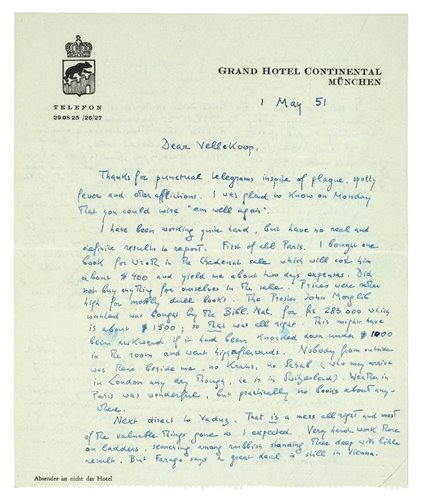 GRAND HOTEL CONTINENTAL
MÜNCHEN
TELEFON
29 08 25 /26/27
1 May 51
Dear Vellekoop,
Thanks for punctual telegrams inspite of plague, spotty
fever and other afflictions. I was glad to know on Monday
that you could wire "am well again".
I have been working quite hard, but have no real and
definite results to report. First of all Paris. I bought one
book for Wroth in the sale which will cost him
about $ 400 and yield me about two days expenses. Did
not buy anything for ourselves in the sale. Prices were rather
high for mostly dull books. The Prester John
wanted was bought by the Bibl. Nat. for frs 283.000 which
is about $ 1500, so that was all right. This might have
been awkward if it had been knocked down under $ 1000
in the room and went high afterwards. Nobody from outside
was there beside me - no Kraus, no (who may arrive
in London any day though, he is in Switzerland). Weather in
Paris was wonderful, but practically no books about any-
where.
Next direct to Vaduz. That is a mess all right and most
of the valuable things gone as I expected. Very hard work there
on ladders, searching among rubbish standing three deep with little
result. But Farago says a great deal is still in Vienna.
Absender ist nicht das Hotel